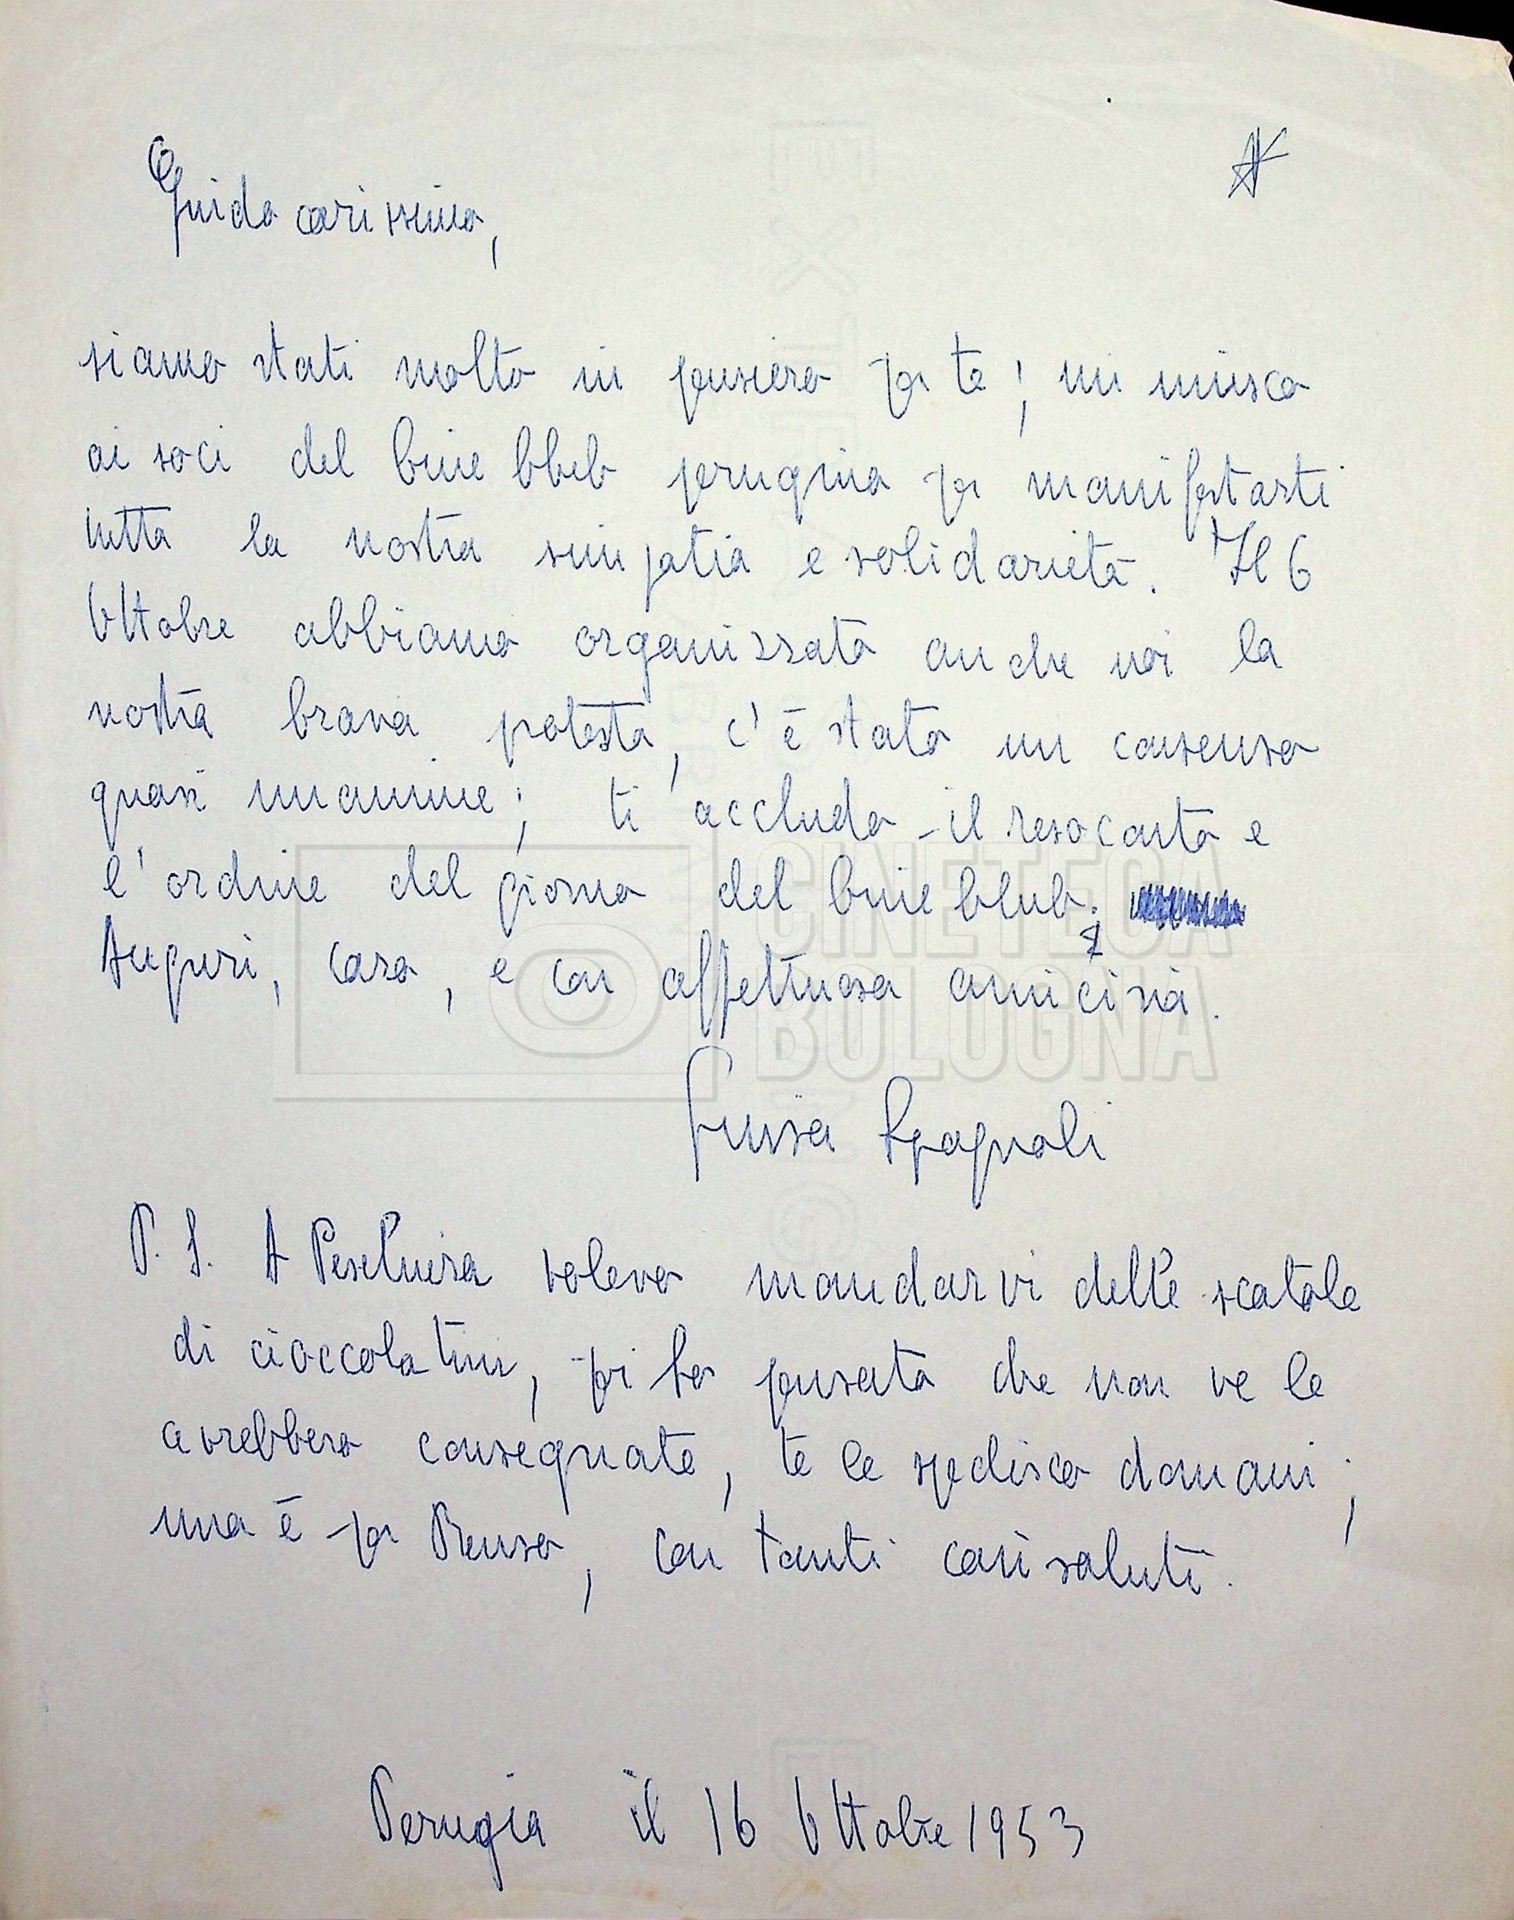 Guido carissimo,
siamo stati molto in pensiero per te; mi unisco
ai soci del Cine Club perugino per manifestarti
tutta la nostra simpatia e solidarietà. Il 6
Ottobre abbiamo organizzato anche noi la
nostra brava protesta, c'è stato un consenso
quasi unanime; ti accludo il resoconto e
l'ordine del giorno del Cine Club.
Auguri, caro, e con affettuosa amicizia.
Spagnoli
P.S. A Peschiera volevo mandarvi delle scatole
di cioccolatini, poi ho pensato che non ve le
avrebbero consegnate, te le spedisco domani;
una è per Renzo, con tanti cari saluti.
Perugia il 16 Ottobre 1953
CINETECA
BOLOGNA